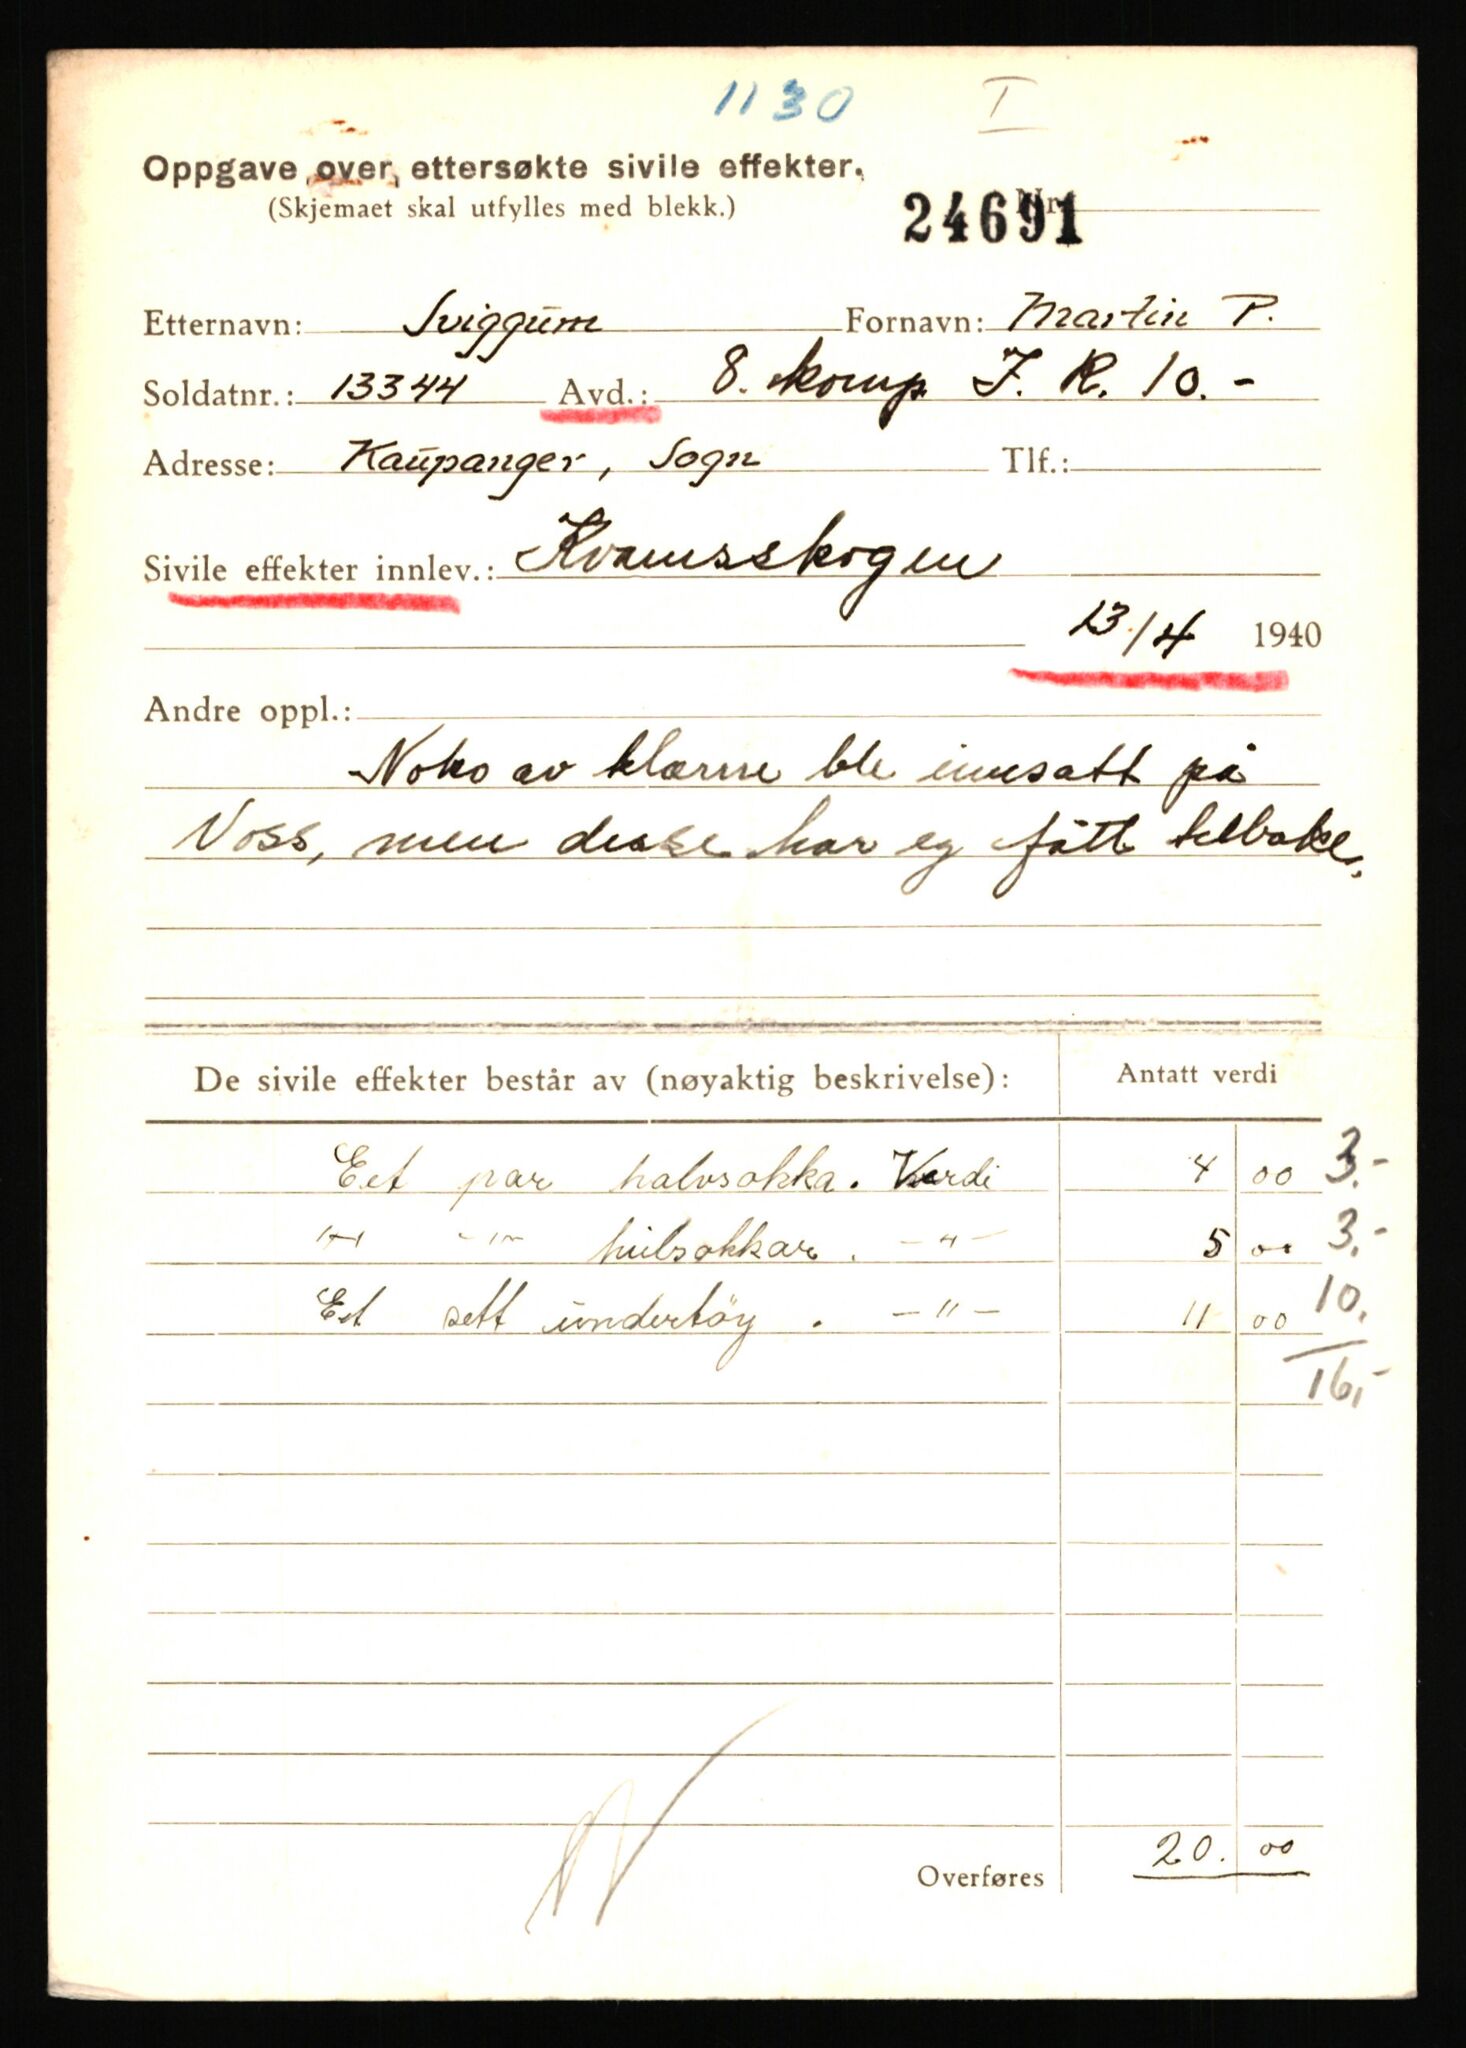 1130 I
Oppgave over ettersøkte sivile effekter.
(Skjemaet skal utfylles med blekk.)
Nr. 24691
Etternavn: Sviggum Fornavn: Martin P.
Soldatnr.: 13344 Avd.: 8. komp. I. R. 10.-
Adresse: Kaupanger, Sogn Tlf.:
Sivile effekter innlev.: Kvamsskogen
13/4 1940
Andre oppl.:
Noko av klærne ble innsatt på
Voss, men disse har eg fått tilbake.
De sivile effekter består av (nøyaktig beskrivelse): Antatt verdi
Eet par halvsokka. Verdi 4 00 3.-
-"- -"- hilsokkar. -"- 5 00 3.-
Eet sett undertöy. -"- 11 00 10.
16,-
Overføres 20.00